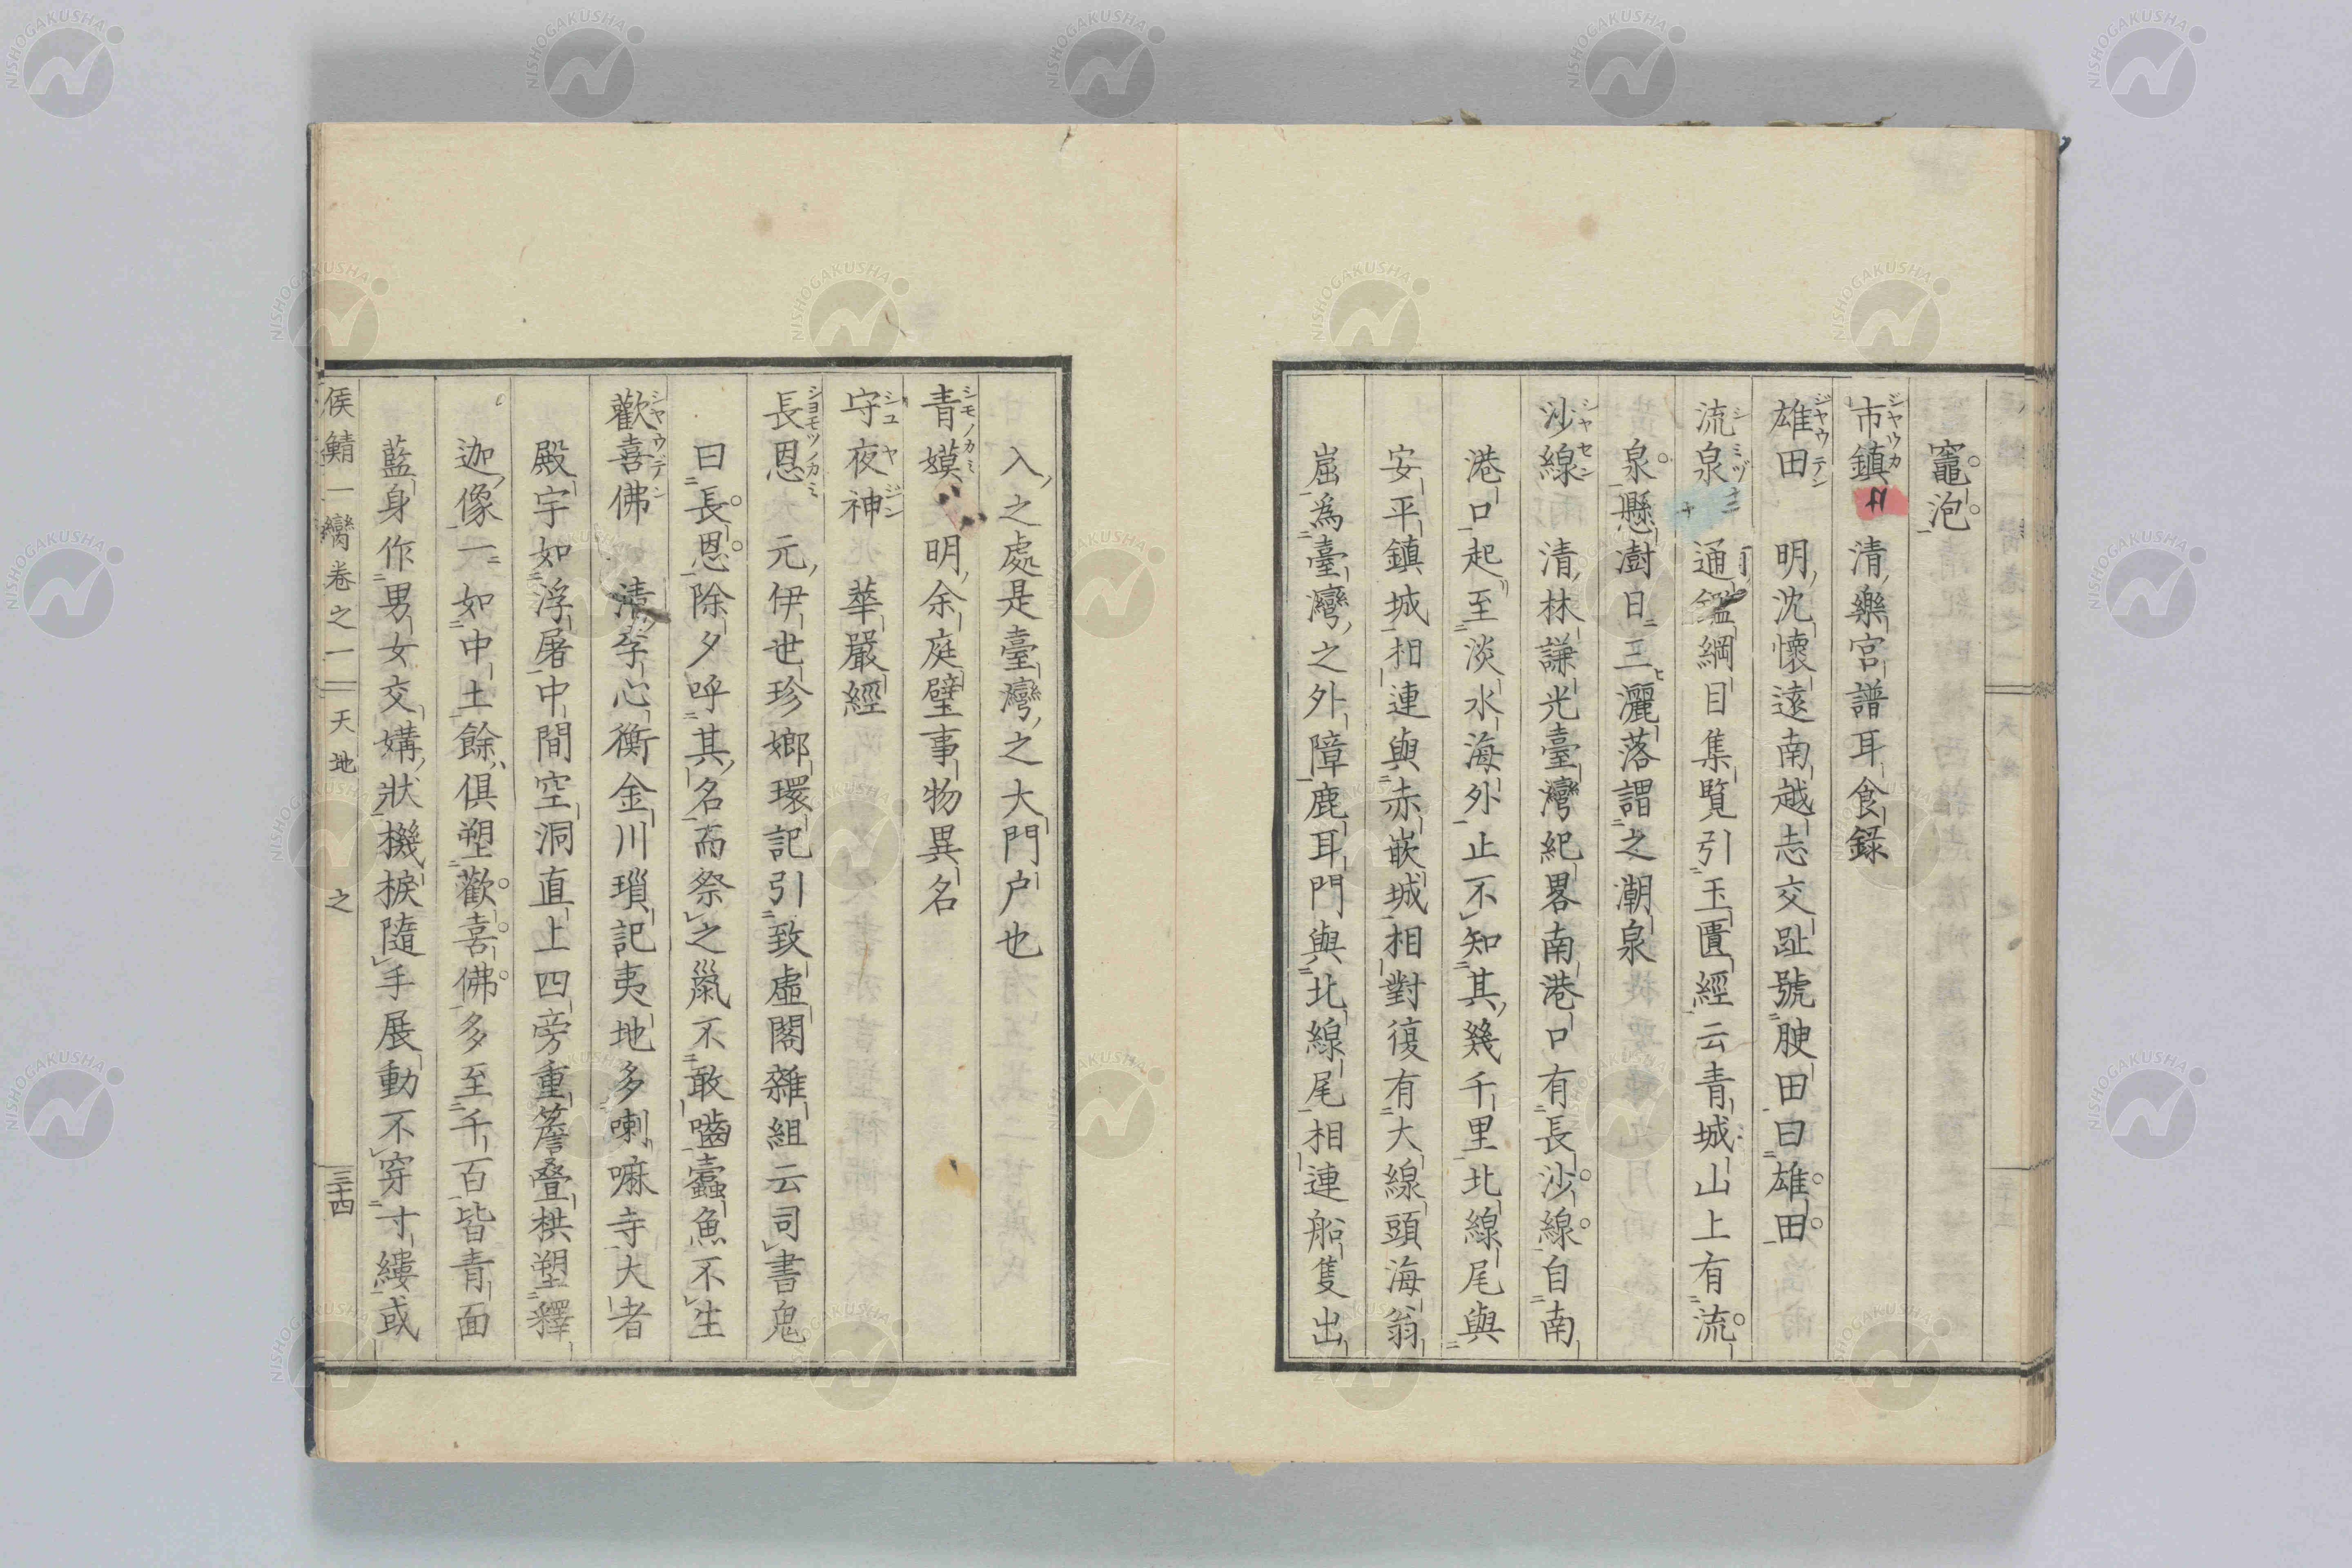 竈泡
市鎮 清樂宮譜耳食録
雄田 明沈懷遠南越志交趾號腴田曰雄田
流泉 通鑑綱目集覧引玉匱經云青城山上有流
泉懸澍日三灑落謂之潮泉
沙線 清林謙光臺灣紀畧南港口有長沙線自南
港口起至淡水海外止不知其幾千里北線尾與
安平鎮城相連與赤嵌城相對復有大線頭海翁
崫爲臺灣之外障鹿耳門與北線尾相連船隻出
入之處是臺灣之大門户也
青嫫 明余庭璧事物異名
守夜神 華嚴經
長恩 元伊世珍嫏環記引致虚閣雜組云司書鬼
曰長恩除夕呼其名而祭之䑕不敢嚙蠹魚不生
歡喜佛 清李心衡金川瑣記夷地多喇嘛寺大者
殿宇如浮屠中間空洞直上四旁重簷叠栱塑釋
迦像一如中土餘俱塑歡喜佛多至千百皆青面
藍身作男女交媾狀機捩隨手展動不穿寸縷或
侯鯖一臠卷之一 天地 之 三十四